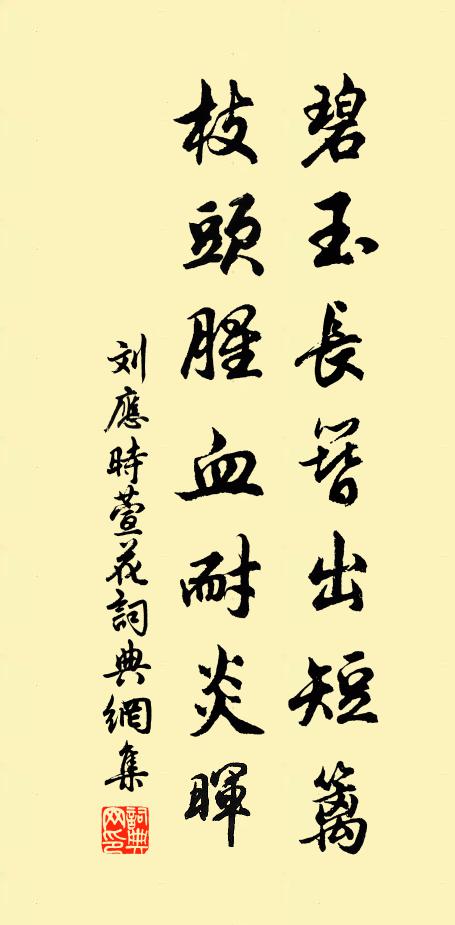 碧玉長簪出短籬
枝頭腥血耐炎暉
刘應時萱花詞典網集
詞典网印